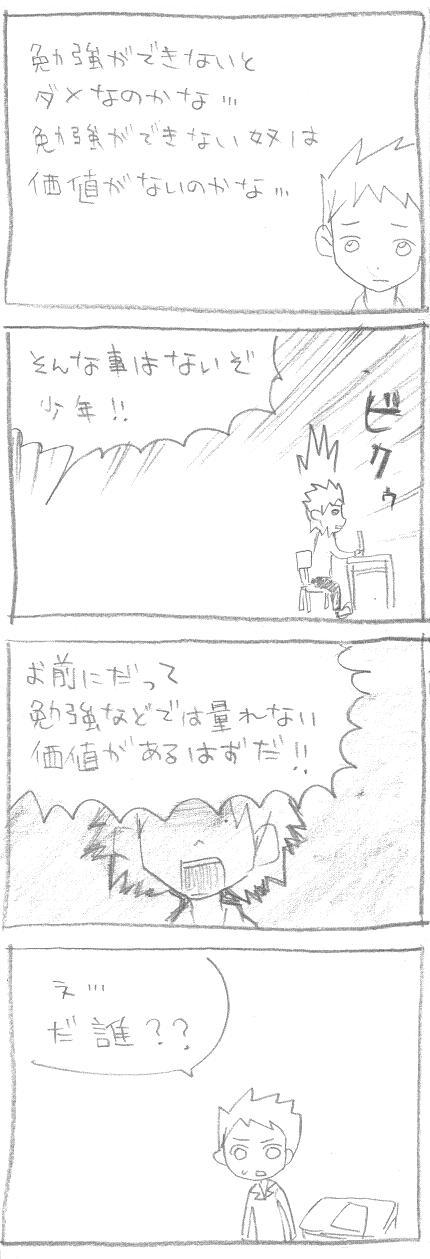 勉強ができないと
ダメなのかな…
勉強ができない奴は
価値がないのかな…
そんな事はないぞ
少年!!
ビクゥ
お前にだって
勉強などでは量れない
価値があるはずだ!!
え…
だ誰??